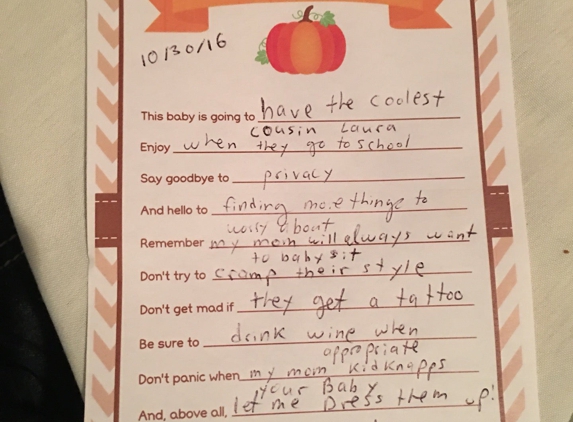 10/30/16
This baby is going to have the coolest
cousin Laura
Enjoy when they go to school
Say goodbye to privacy
And hello to finding more things to
worry about
Remember my mom will always want
to baby sit
Don't try to cramp their style
Don't get mad if they get a tattoo
Be sure to drink wine when
appropriate
Don't panic when my mom kidknapps
your Baby
And, above all, let me Dress them up!